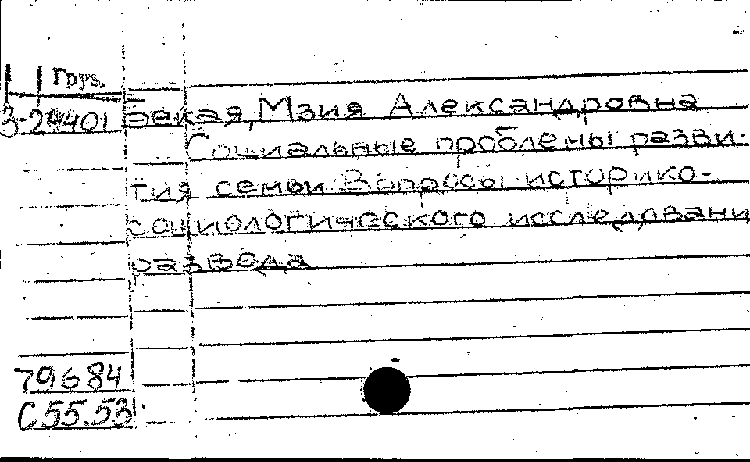 Груз.
3-24401
Зекая, Мзия Александровна
Социальные проблемы разви-
тия семьи. Вопросы историко-
социологического исследовани
развода
79684
С.55.53